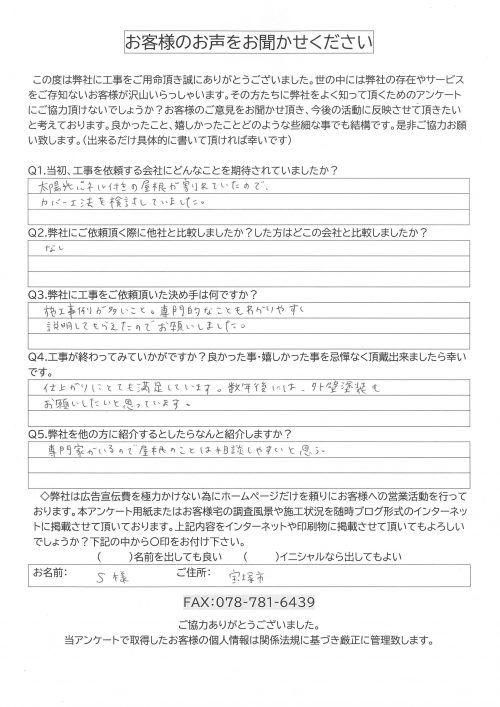 お客様のお声をお聞かせください
この度は弊社に工事をご用命頂き誠にありがとうございました。世の中には弊社の存在やサービス
をご存知ないお客様が沢山いらっしゃいます。その方たちに弊社をよく知って頂くためのアンケート
にご協力頂けないでしょうか？お客様のご意見をお聞かせ頂き、今後の活動に反映させて頂きたい
と考えております。良かったこと、嬉しかったことどのような些細な事でも結構です。是非ご協力お願
い致します。(出来るだけ具体的に書いて頂ければ幸いです)
Q1.当初、工事を依頼する会社にどんなことを期待されていましたか？
太陽光パネル付きの屋根が割れていたので、
カバー工法を検討していました。
Q2.弊社にご依頼頂く際に他社と比較しましたか？した方はどこの会社と比較しましたか？
なし
Q3.弊社に工事をご依頼頂いた決め手は何ですか？
施工事例が多いこと。専門的なこともわかりやすく
説明してもらえたのでお願いしました。
Q4.工事が終わってみていかがですか？良かった事・嬉しかった事を忌憚なく頂戴出来ましたら幸い
です。
仕上がりにとても満足しています。数年後には、外壁塗装も
お願いしたいと思っています。
Q5.弊社を他の方に紹介するとしたらなんと紹介しますか？
専門家がいるので屋根のことは相談しやすいと思う。
◇弊社は広告宣伝費を極力かけない為にホームページだけを頼りにお客様への営業活動を行って
おります。本アンケート用紙またはお客様宅の調査風景や施工状況を随時ブログ形式のインターネッ
トに掲載させて頂いております。上記内容をインターネットや印刷物に掲載させて頂いてもよろしい
でしょうか？下記の中から○印をお付け下さい。
(　　)名前を出しても良い　(　　)イニシャルなら出してもよい
お名前:　S様　ご住所:　宝塚市
FAX:078-781-6439
ご協力ありがとうございました。
当アンケートで取得したお客様の個人情報は関係法規に基づき厳正に管理致します。